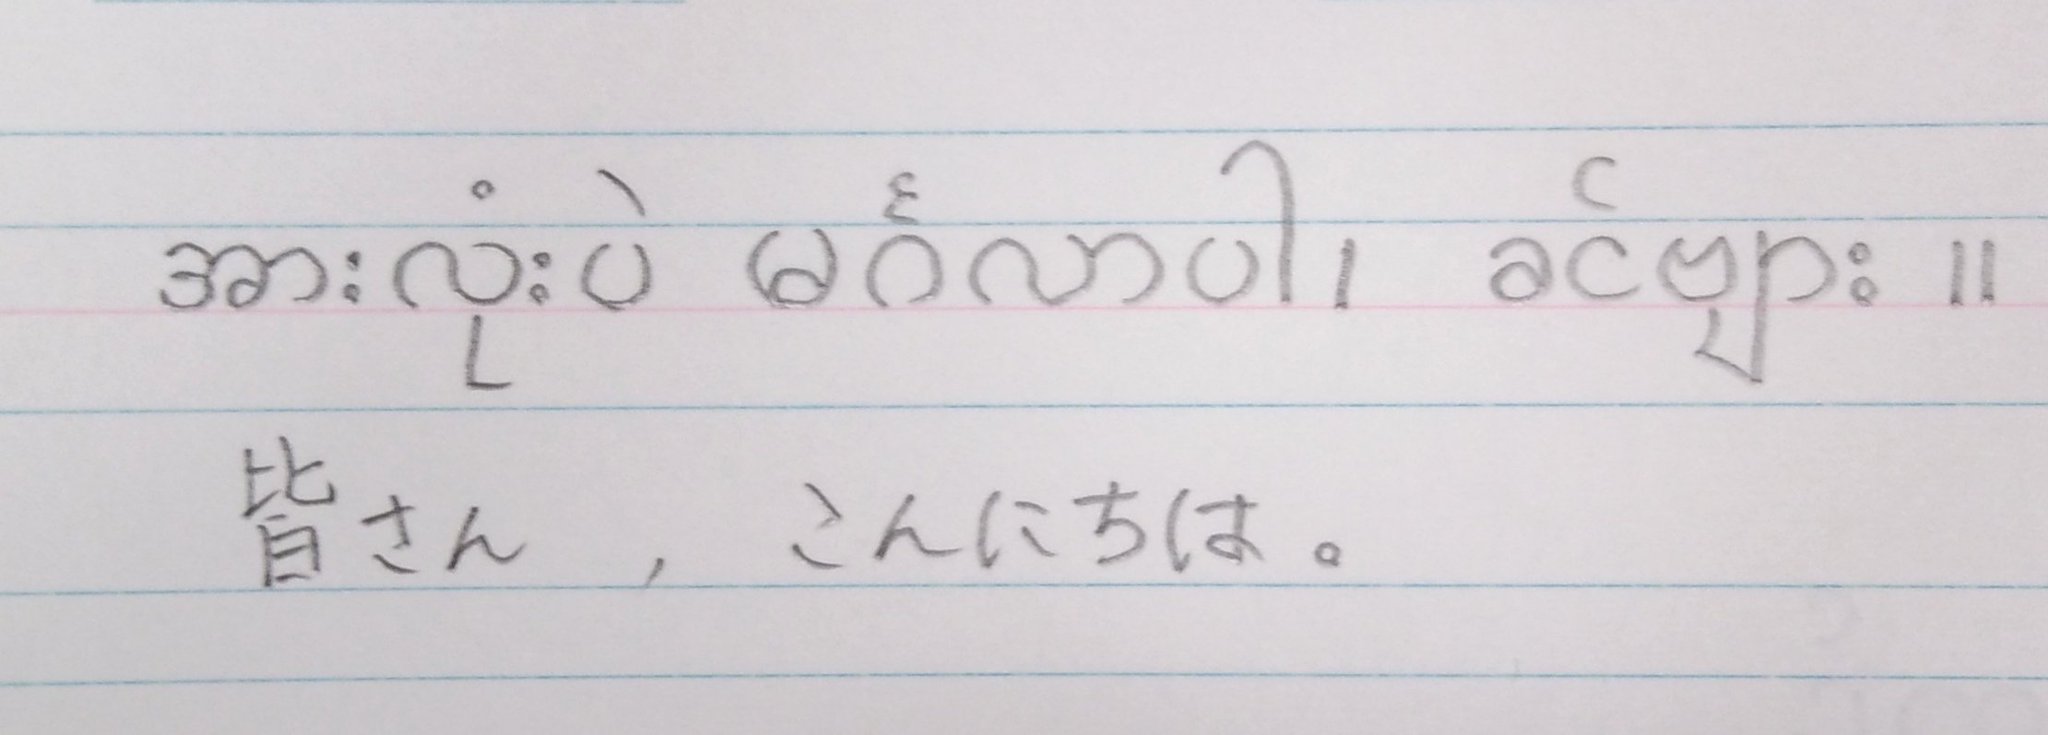 အားလုံးပဲ မင်္ဂလာပါ၊ ခင်ဗျား ။
皆さん , こんにちは。